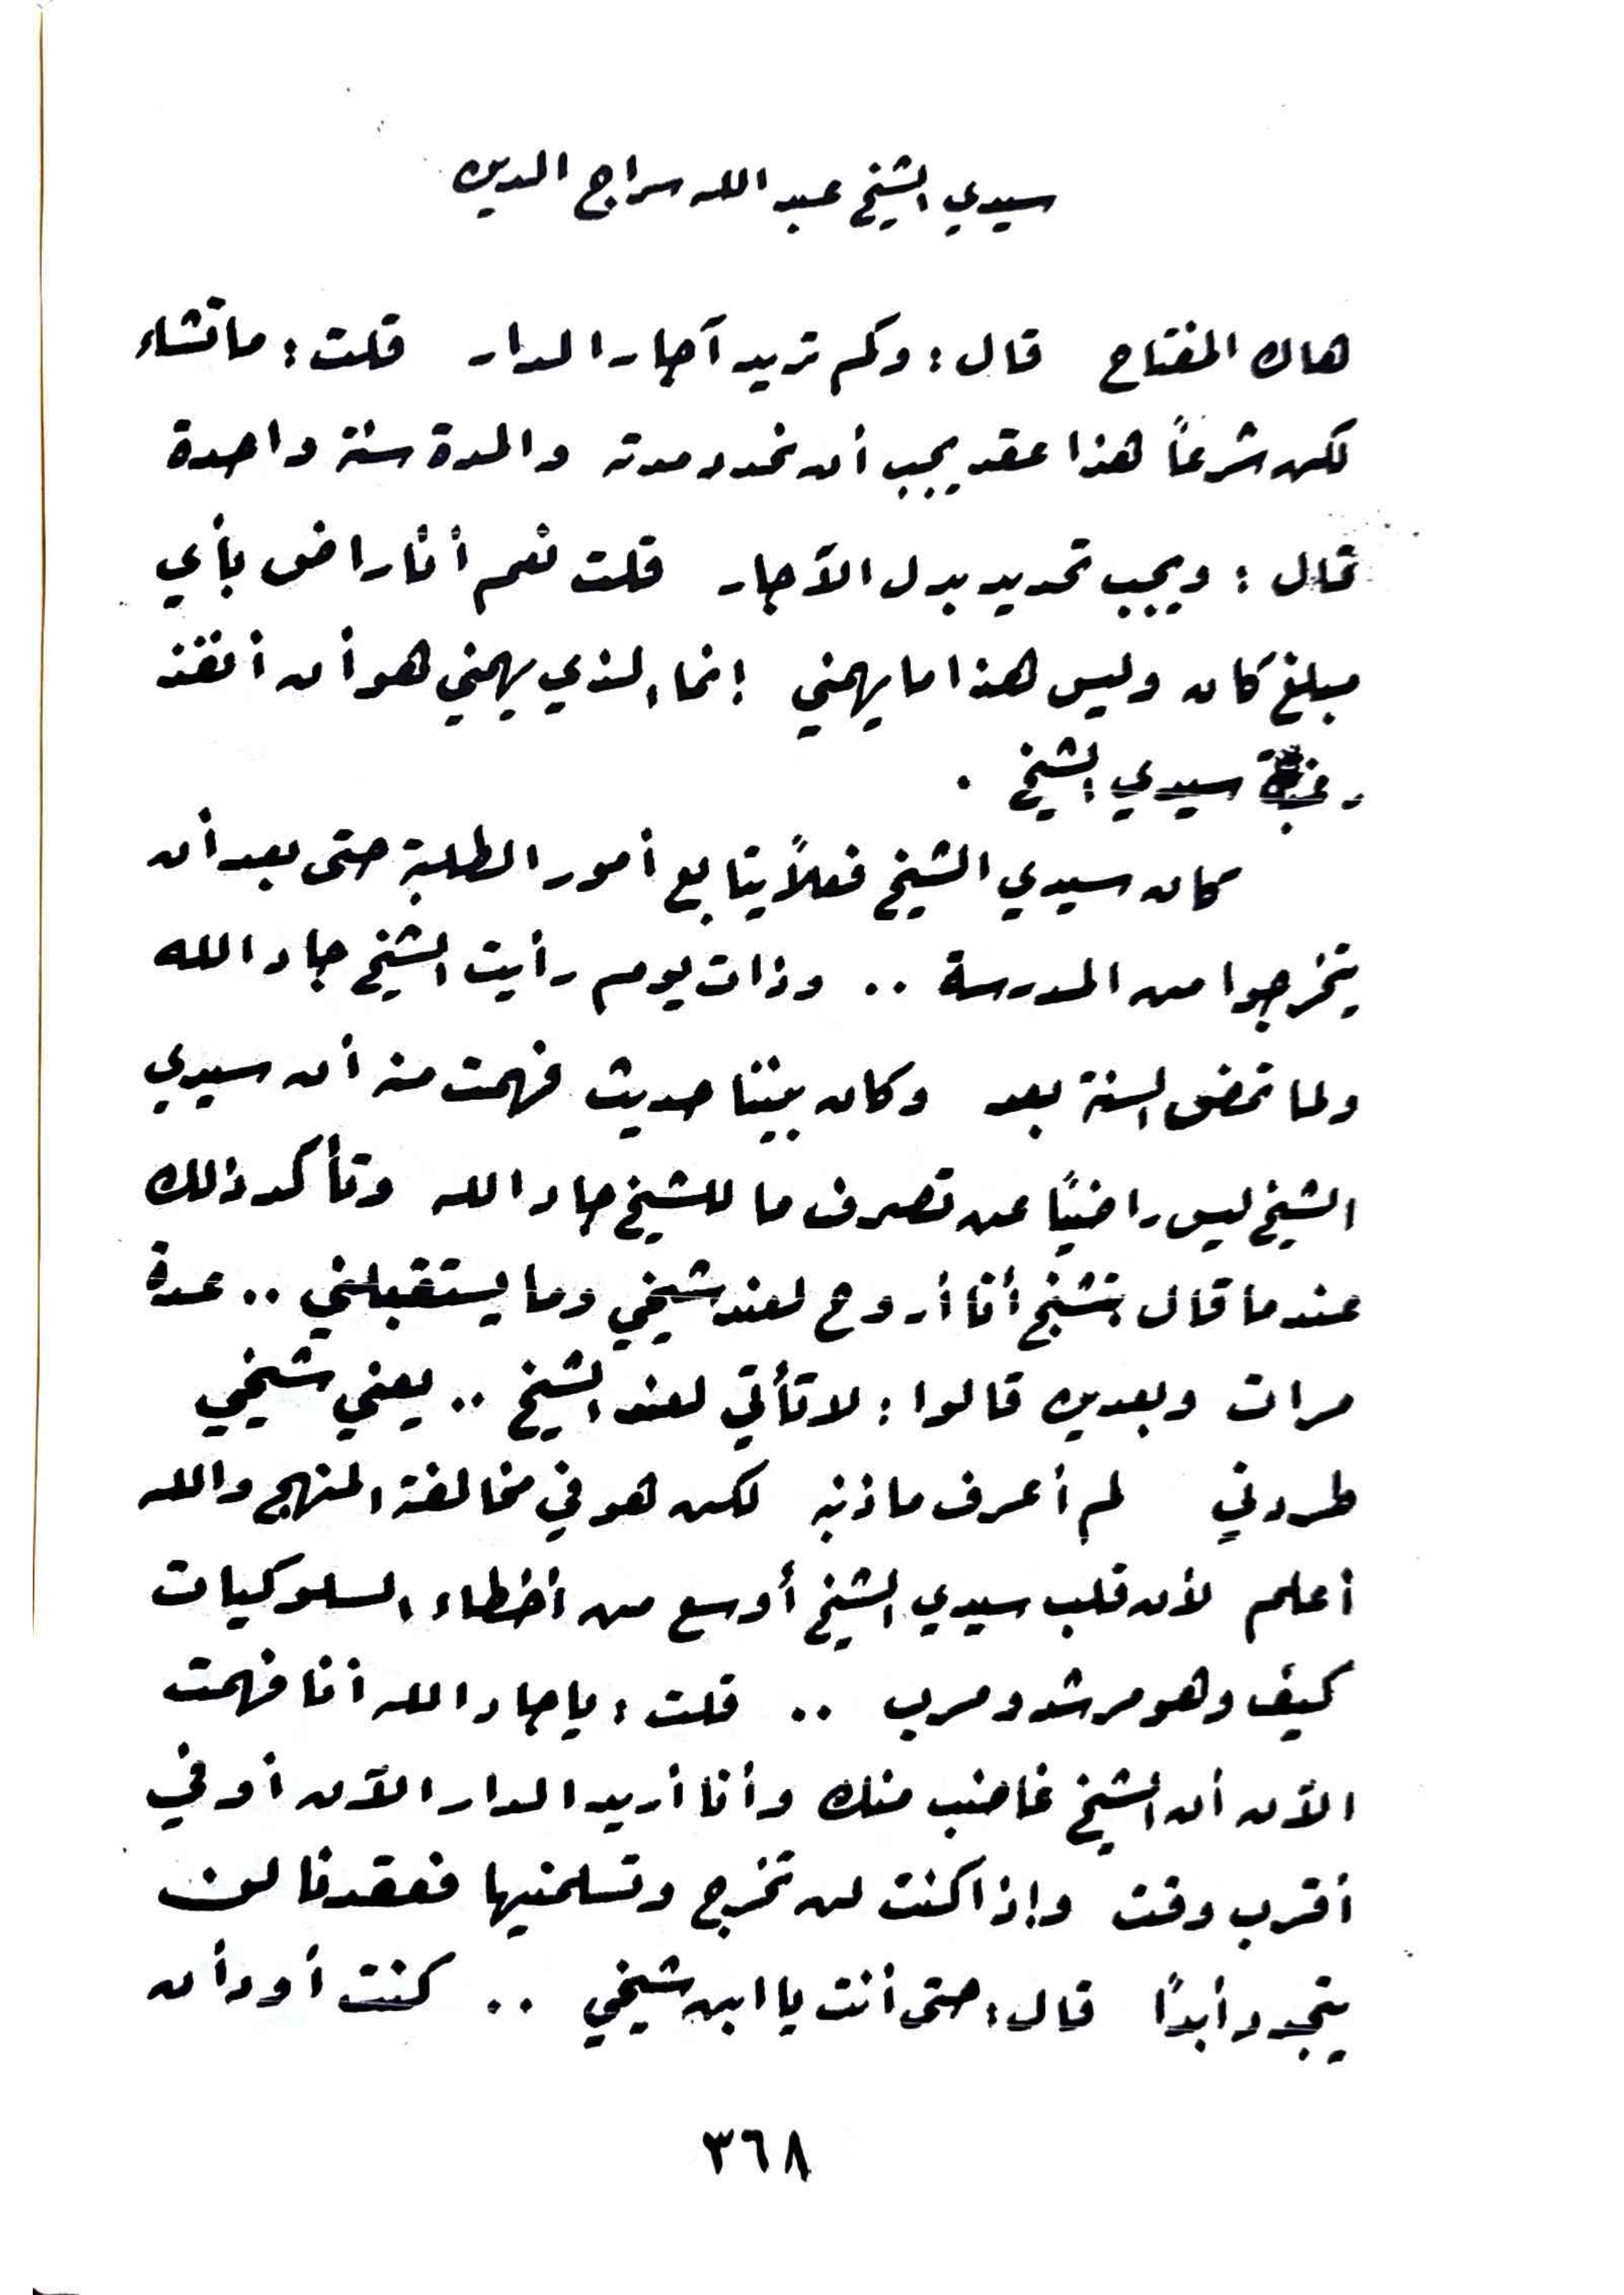 سيدي الشيخ عبد الله سراج الدين
هاك المفتاح قال : وكم تريد آجار الدار قلت : ما تشاء
لكن شرعاً هذا عقد يجب أن نحدد مدته والمدة سنة واحدة
قال : ويجب تحديد بدل الآجار قلت نعم أنا راض بأي
مبلغ كان وليس هذا ما يهمني إنما الذي يهمني هو أن أنفذ
رغبة سيدي الشيخ .
كان سيدي الشيخ فعلاً يتابع أمور الطلبة حتى بعد أن
يتخرجوا من المدرسة .. وذات يوم رأيت الشيخ جاد الله
ولما تمض السنة بعد وكان بيننا حديث فهمت منه أن سيدي
الشيخ ليس راضياً عن تصرف ما للشيخ جاد الله وتأكد ذلك
عندما قال بتشنج أنا أروح لعند شيخي وما يستقبلني .. عدة
مرات وبعدين قالوا : لا تأتي لعند الشيخ .. يعني شيخي
طردني لم أعرف ما ذنبه لكن هو في مخالفة المنهج والله
أعلم لأن قلب سيدي الشيخ أوسع من أخطاء السلوكيات
كيف وهو مرشد ومرب .. قلت : يا جاد الله أنا فهمت
الآن أن الشيخ غاضب منك وأنا أريد الدار الآن أو في
أقرب وقت وإذا كنت لن تخرج وتسلمنيها فعقدنا لن
يتجدد أبداً قال : حتى أنت يا ابن شيخي .. كنت أود أن
٣٦٨